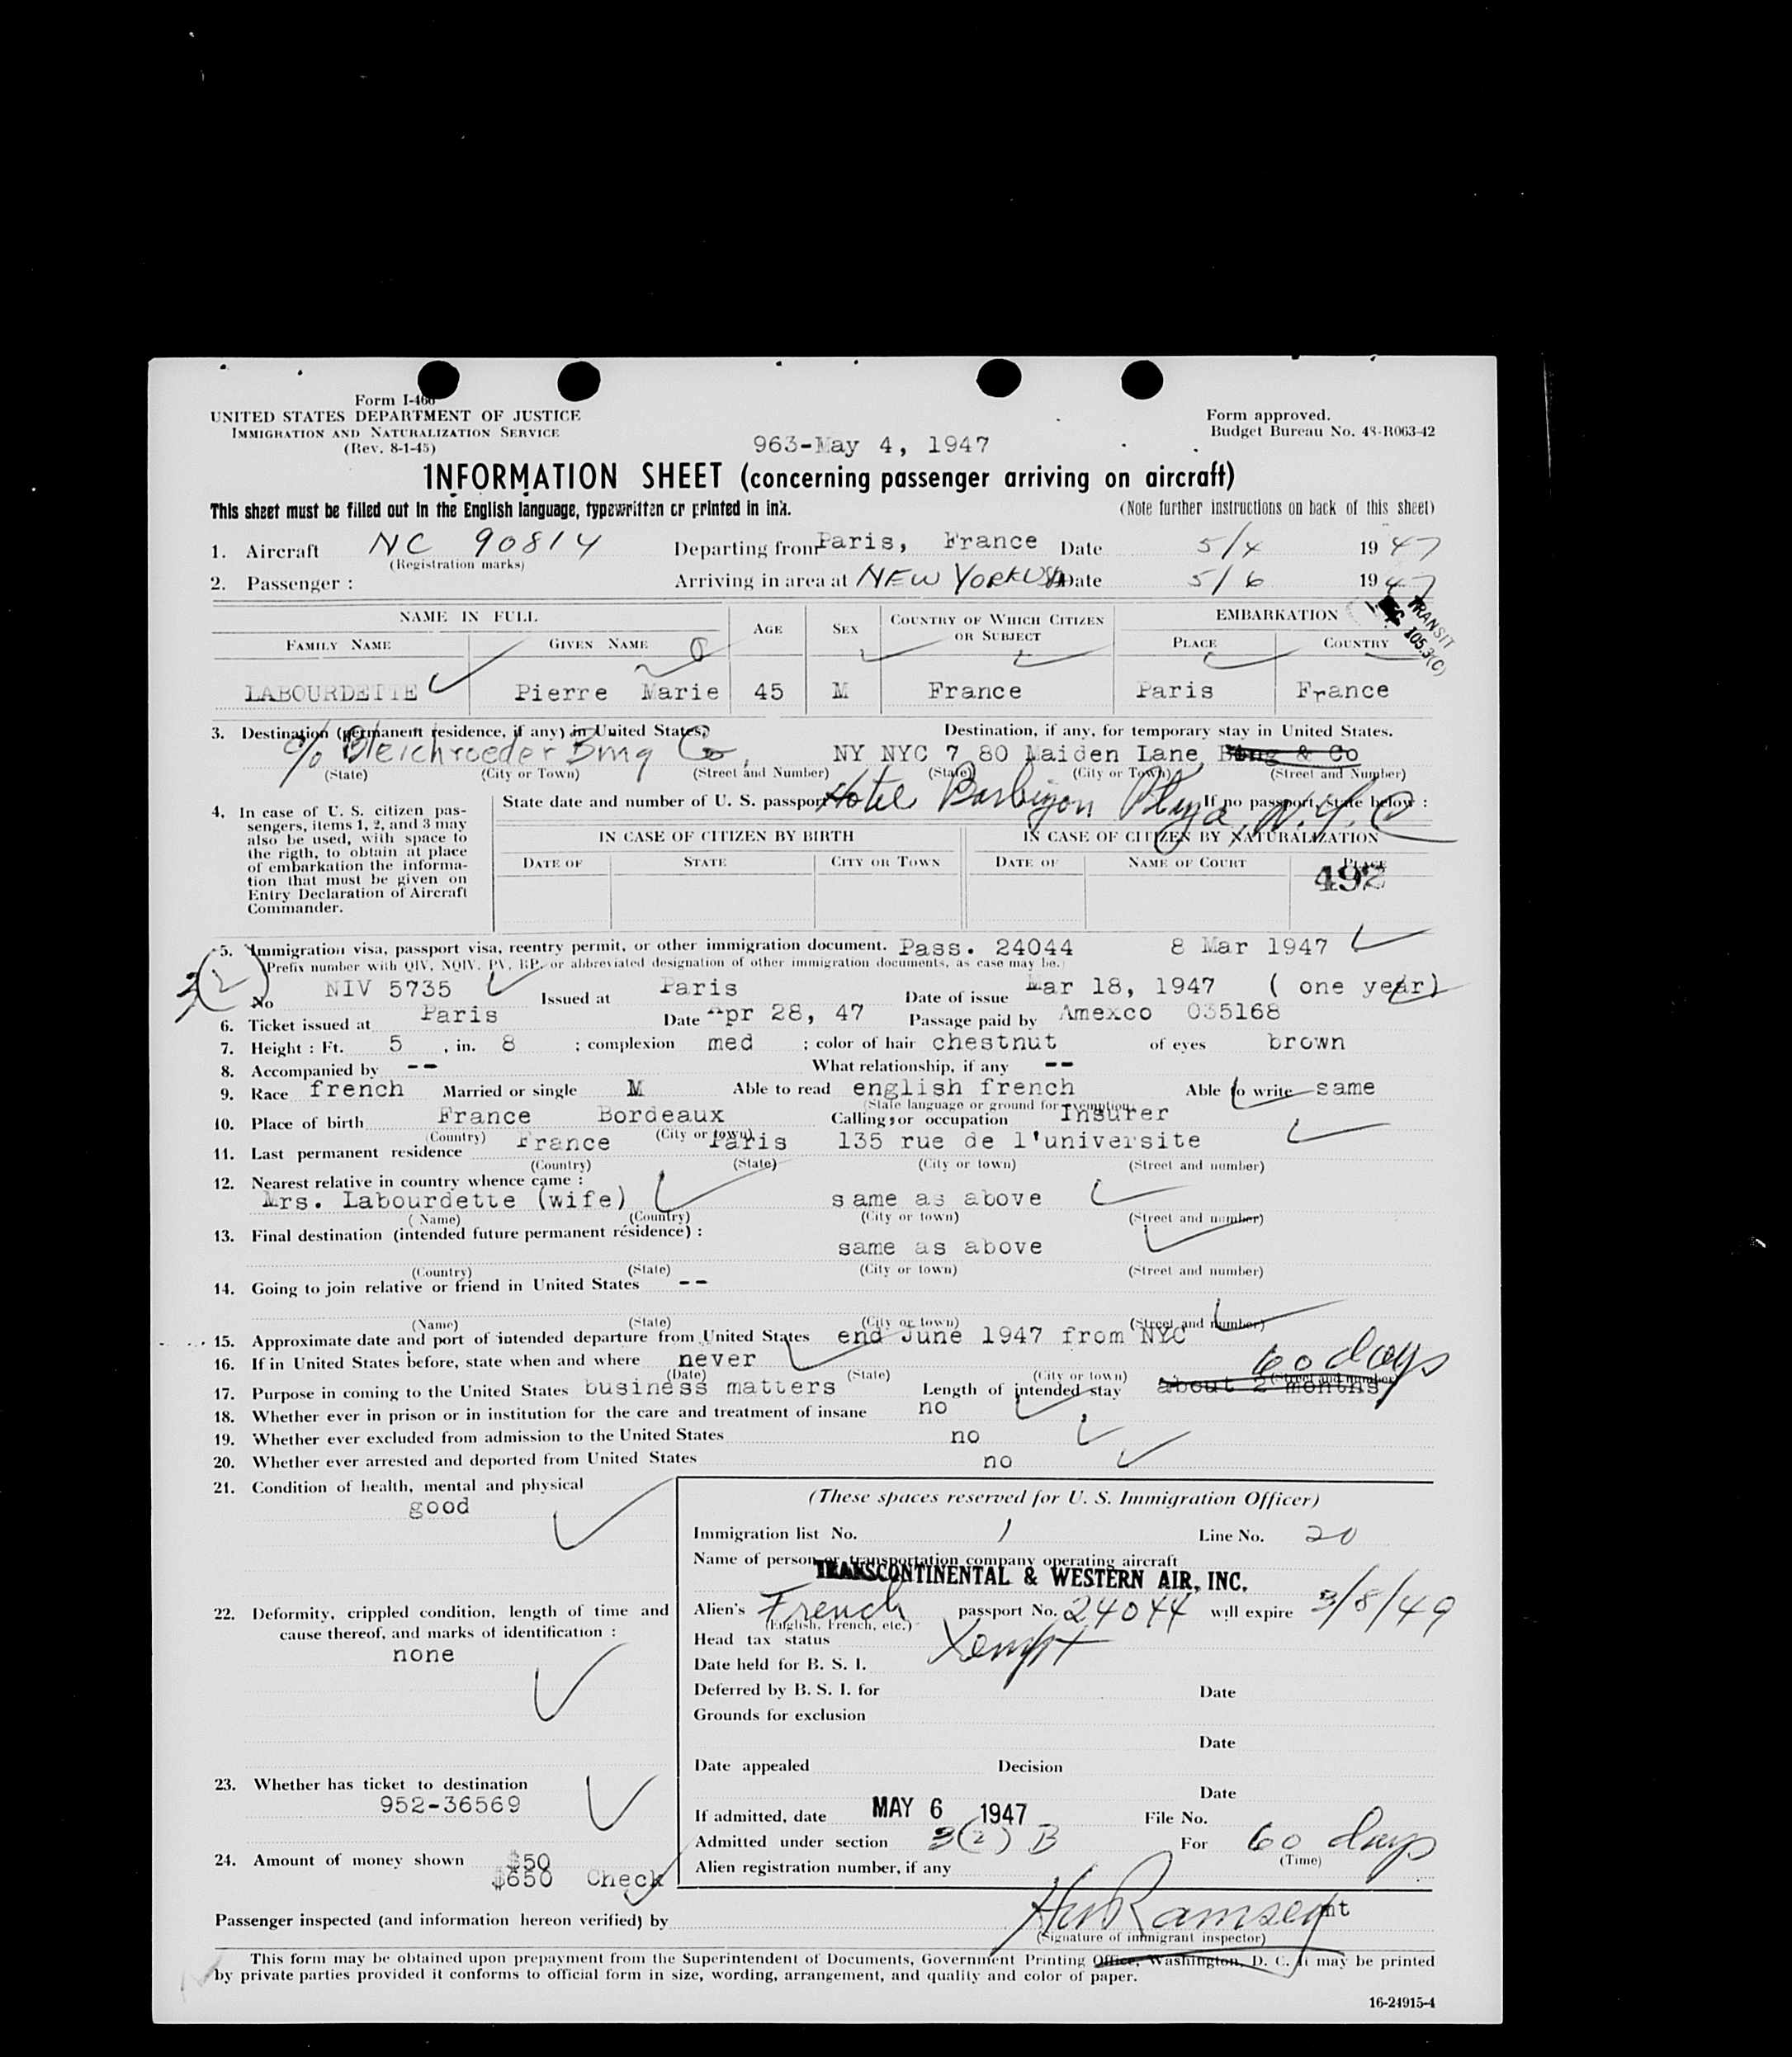 Form I-466
UNITED STATES DEPARTMENT OF JUSTICE
IMMIGRATION AND NATURALIZATION SERVICE
(Rev. 8-1-45)
Form approved.
Budget Bureau No. 43-R063-42
963-May 4, 1947
INFORMATION SHEET (concerning passenger arriving on aircraft)
This sheet must be filled out in the English language, typewritten or printed in ink.
(Note further instructions on back of this sheet)
1. Aircraft NC 90814 Departing from Paris, France Date 5/4 1947
(Registration marks)
2. Passenger : Arriving in area at NEW YORK USA Date 5/6 1947
TRANSIT
105.3(C)
NAME IN FULL AGE SEX COUNTRY OF WHICH CITIZEN OR SUBJECT EMBARKATION
FAMILY NAME GIVEN NAME PLACE COUNTRY
LABOURDETTE Pierre Marie 45 M France Paris France
3. Destination (permanent residence, if any) in United States, Destination, if any, for temporary stay in United States.
c/o Bleichroeder Bing Co, NY NYC 7 80 Maiden Lane, Bing & Co
(State) (City or Town) (Street and Number) (State) (City or Town) (Street and Number)
4. In case of U. S. citizen passengers, items 1, 2, and 3 may also be used, with space to the rigth, to obtain at place of embarkation the information that must be given on Entry Declaration of Aircraft Commander.
State date and number of U. S. passport If no passport, state below :
Hotel Barbizon Plaza, N.Y.C
IN CASE OF CITIZEN BY BIRTH IN CASE OF CITIZEN BY NATURALIZATION
DATE OF STATE CITY OR TOWN DATE OF NAME OF COURT PLACE
492
5. Immigration visa, passport visa, reentry permit, or other immigration document. Pass. 24044 8 Mar 1947
Prefix number with QIV, NQIV, PV, RP, or abbreviated designation of other immigration documents, as case may be.
3(2)
No NIV 5735 Issued at Paris Date of issue Mar 18, 1947 ( one year)
6. Ticket issued at Paris Date Apr 28, 47 Passage paid by Amexco 035168
7. Height : Ft. 5 , in. 8 ; complexion med ; color of hair chestnut of eyes brown
8. Accompanied by -- What relationship, if any --
9. Race french Married or single M Able to read english french Able to write same
(State language or ground for exemption)
10. Place of birth France Bordeaux Calling or occupation Insurer
(Country) (City or town)
11. Last permanent residence France Paris 135 rue de l'universite
(Country) (State) (City or town) (Street and number)
12. Nearest relative in country whence came :
Mrs. Labourdette (wife) same as above
(Name) (Country) (City or town) (Street and number)
13. Final destination (intended future permanent résidence) :
same as above
(Country) (State) (City or town) (Street and number)
14. Going to join relative or friend in United States --
(Name) (State) (City or town) (Street and number)
15. Approximate date and port of intended departure from United States end June 1947 from NYC
16. If in United States before, state when and where never
(Date) (State) (City or town) (Street and number)
60 days
17. Purpose in coming to the United States business matters Length of intended stay about 2 months
18. Whether ever in prison or in institution for the care and treatment of insane no
19. Whether ever excluded from admission to the United States no
20. Whether ever arrested and deported from United States no
21. Condition of health, mental and physical
good
22. Deformity, crippled condition, length of time and cause thereof, and marks of identification :
none
23. Whether has ticket to destination
952-36569
24. Amount of money shown $50
$650 Check
(These spaces reserved for U. S. Immigration Officer)
Immigration list No. 1 Line No. 20
Name of person or transportation company operating aircraft
TRANSCONTINENTAL & WESTERN AIR, INC.
Alien's French passport No. 24044 will expire 3/8/49
(English, French, etc.)
Head tax status Xempt
Date held for B. S. I.
Deferred by B. S. I. for Date
Grounds for exclusion
Date
Date appealed Decision
Date
If admitted, date MAY 6 1947 File No.
Admitted under section 3(2) B For 60 days
(Time)
Alien registration number, if any
Passenger inspected (and information hereon verified) by Ramsey
(Signature of immigrant inspector)
This form may be obtained upon prepayment from the Superintendent of Documents, Government Printing Office, Washington, D. C. It may be printed
by private parties provided it conforms to official form in size, wording, arrangement, and quality and color of paper.
16-24915-4